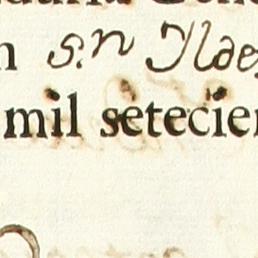 s.n Ylde
mil setecien